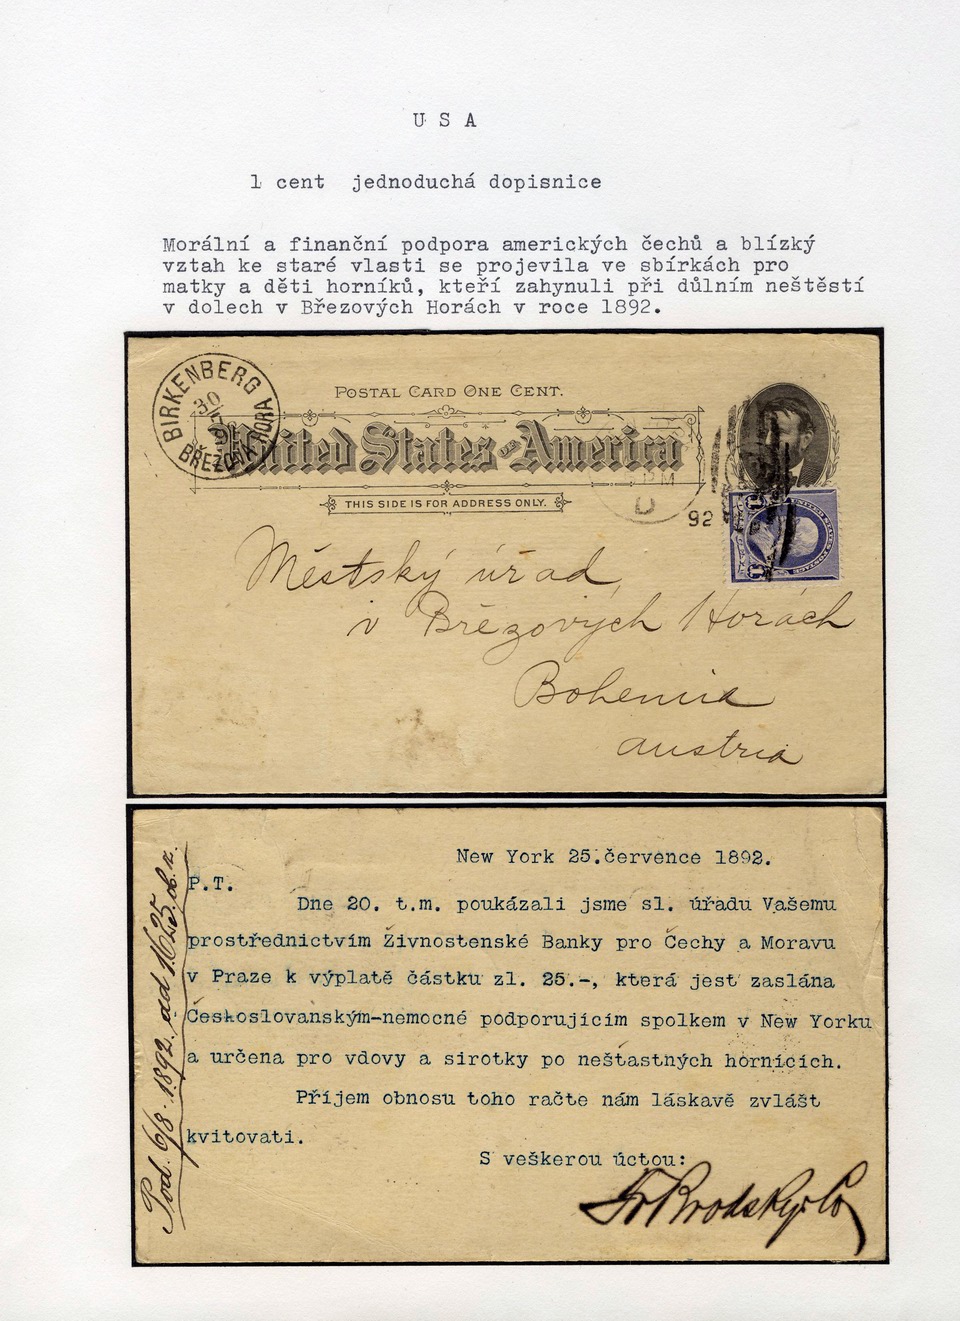 U S A
1 cent jednoduchá dopisnice
Morální a finanční podpora amerických čechů a blízký
vztah ke staré vlasti se projevila ve sbírkách pro
matky a děti horníků, kteří zahynuli při důlním neštěstí
v dolech v Březových Horách v roce 1892.
BIRKENBERG
30
BŘEZOVÁ HORA
POSTAL CARD ONE CENT.
United States of America
THIS SIDE IS FOR ADDRESS ONLY.
PM
D
92
UNITED STATES POSTAGE
1 1
Městský úřad
v Březových Horách
Bohemia
Austria
New York 25. července 1892.
P.T.
Dne 20. t.m. poukázali jsme sl. úřadu Vašemu
prostřednictvím Živnostenské Banky pro Čechy a Moravu
v Praze k výplatě částku zl. 25.-, která jest zaslána
Československým-nemocné podporujícím spolkem v New Yorku
a určena pro vdovy a sirotky po nešťastných hornících.
Příjem obnosu toho račte nám láskavě zvlášt
kvitovati.
S veškerou úctou:
Fr Brodsky & Co
Pod. 6/8. 1892. ad